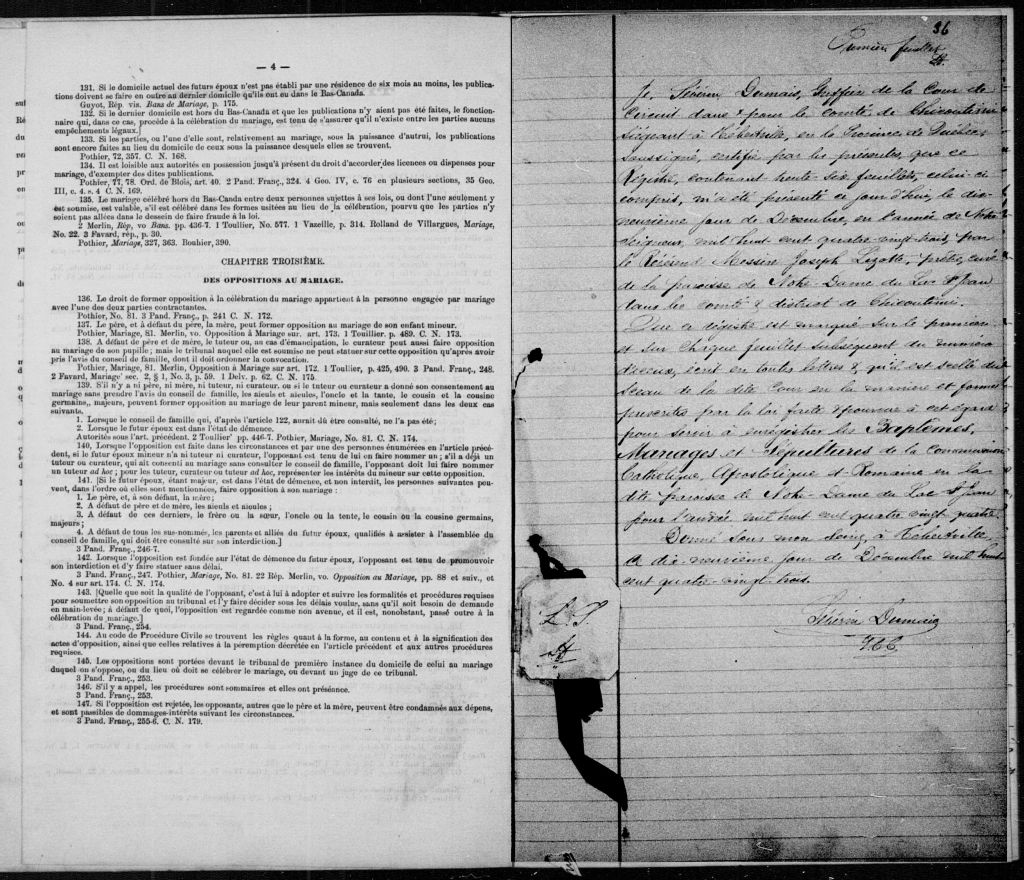 — 4 —
131. Si le domicile actuel des futurs époux n'est pas établi par une résidence de six mois au moins, les publications doivent se faire en outre au dernier domicile qu'ils ont eu dans le Bas-Canada.
Guyot, Rép. vis. Bans de Mariage, p. 175.
132. Si le dernier domicile est hors du Bas-Canada et que les publications n'y aient pas été faites, le fonctionnaire qui, dans ce cas, procède à la célébration du mariage, est tenu de s'assurer qu'il n'existe entre les parties aucuns empêchements légaux.]
133. Si les parties, ou l'une d'elle sont, relativement au mariage, sous la puissance d'autrui, les publications sont encore faites au lieu du domicile de ceux sous la puissance desquels elles se trouvent.
Pothier, 72, 357. C. N. 168.
134. Il est loisible aux autorités en possession jusqu'à présent du droit d'accorder des licences ou dispenses pour mariage, d'exempter des dites publications.
Pothier, 77, 78. Ord. de Blois, art. 40. 2 Pand. Franç., 324. 4 Geo. IV, c. 76 en plusieurs sections, 35 Geo. III, c. 4. s. 4 C. N. 169.
135. Le mariage célébré hors du Bas-Canada entre deux personnes sujettes à ses lois, ou dont l'une seulement y est soumise, est valable, s'il est célébré dans les formes usitées au lieu de la célébration, pourvu que les parties n'y soient pas allées dans le dessein de faire fraude à la loi.
2 Merlin, Rép, vo Bans. pp. 436-7. 1 Toullier, No. 577. 1 Vazeille, p. 314. Rolland de Villargues, Mariage, No. 22. 3 Favard, rép., p. 30.
Pothier, Mariage, 327, 363. Bouhier, 390.
CHAPITRE TROISIÈME.
DES OPPOSITIONS AU MARIAGE.
136. Le droit de former opposition à la célébration du mariage appartient à la personne engagée par mariage avec l'une des deux parties contractantes.
Pothier, No. 81. 3 Pand. Franç., p. 241 C. N. 172.
137. Le père, et à défaut du père, la mère, peut former opposition au mariage de son enfant mineur.
Pothier, Mariage, 81. Merlin, vo. Opposition au Mariage sur. art. 173. 1 Touillier. p. 489. C. N. 173.
138. A défaut de père et de mère, le tuteur ou, au cas d'émancipation, le curateur peut aussi faire opposition au mariage de son pupille; mais le tribunal auquel elle est soumise ne peut statuer sur cette opposition qu'après avoir pris l'avis du conseil de famille, dont il doit ordonner la convocation.
Pothier, Mariage, 81. Merlin, Opposition à Mariage sur art. 172. 1 Toulier, p. 425, 490. 3 Pand. Franç., 248. 2 Favard, Mariage sec. 2, § 1, No. 3, p. 59. 1 Delv. p. 62. C. N. 175.
139. S'il n'y a ni père, ni mère, ni tuteur, ni curateur, ou si le tuteur ou curateur a donné son consentement au mariage sans prendre l'avis du conseil de famille, les aïeuls et aïeules, l'oncle et la tante, le cousin et la cousine germains, majeurs, peuvent former opposition au mariage de leur parent mineur, mais seulement dans les deux cas suivants.
1. Lorsque le conseil de famille qui, d'après l'article 122, aurait dû être consulté, ne l'a pas été;
2. Lorsque le futur époux est dans l'état de démence.
Autorités sous l'art. précédent. 2 Toullier pp. 446-7. Pothier, Mariage, No. 81. C. N. 174.
140. Lorsque l'opposition est faite dans les circonstances et par une des personnes énumérées en l'article précédent, si le futur époux mineur n'a ni tuteur ni curateur, l'opposant est tenu de lui en faire nommer un; s'il a déjà un tuteur ou curateur, qui ait consenti au mariage sans consulter le conseil de famille, l'opposant doit lui faire nommer un tuteur ad hoc; pour les tuteur, curateur ou tuteur ad hoc, représenter les intérêts du mineur sur cette opposition.
141. [Si le futur époux, étant majeur, est dans l'état de démence, et non interdit, les personnes suivantes peuvent, dans l'ordre où elles sont mentionnées, faire opposition à son mariage:
1. Le père, et, à son défaut, la mère;
2. A défaut de père et de mère, les aïeuls et aïeules;
3. A défaut de ces derniers, le frère ou la sœur, l'oncle ou la tente, le cousin ou la cousine germains, majeurs;
4. A défaut de tous les sus-nommés, les parents et alliés du futur époux, qualifiés à assister à l'assemblée du conseil de famille, qui doit être consulté sur son interdiction.]
3 Pand. Franç., 246-7.
142. Lorsque l'opposition est fondée sur l'état de démence du futur époux, l'opposant est tenu de promouvoir son interdiction et d'y faire statuer sans délai.
3 Pand. Franç., 247. Pothier, Mariage, No. 81. 22 Rép. Merlin, vo. Opposition au Mariage, pp. 88 et suiv., et No. 4 sur art. 174. C. N. 174.
143. [Quelque que soit la qualité de l'opposant, c'est à lui à adopter et suivre les formalités et procédures requises pour soumettre son opposition au tribunal et l'y faire décider sous les délais voulus, sans qu'il soit besoin de demande en main-levée; à défaut de quoi, l'opposition est regardée comme non avenue, et il est, nonobstant, passé outre à la célébration du mariage.]
3 Pand. Franç., 254.
144. Au code de Procédure Civile se trouvent les règles quant à la forme, au contenu et à la signification des actes d'opposition, ainsi que celles relatives à la péremption décrétée en l'article précédent et aux autres procédures requises.
145. Les oppositions sont portées devant le tribunal de première instance du domicile de celui au mariage duquel on s'oppose, ou du lieu où doit se célébrer le mariage, ou devant un juge de ce tribunal.
3 Pand. Franç., 253.
146. S'il y a appel, les procédures sont sommaires et elles ont préséance.
3 Pand. Franç., 253.
147. Si l'opposition est rejetée, les opposants, autres que le père et la mère, peuvent être condamnés aux dépens, et sont passibles de dommages-intérêts suivant les circonstances.
3 Pand. Franç., 255-6. C. N. 179.
36
Premier feuillet
Je, Séverin Dumais, Greffier de la Cour de
Circuit dans & pour le comté de Chicoutimi
Siégeant à Hébertville, en la Province de Québec,
soussigné, certifie par les présentes, que ce
Régistre, contenant trente-six feuillets, celui-ci
compris, m'a été présenté ce jour d'hui, le dix-
neuvième jour de Décembre, en l'année de Notre
Seigneur, mil huit cent quatre-vingt-trois, par
le Révérend Messire Joseph Lizotte, prêtre, curé
de la paroisse de Notre-Dame du Lac St Jean
dans les comté & district de Chicoutimi.
Que ce régistre est marqué sur le premier
et sur chaque feuillet subséquent du numéro
d'iceux, écrit en toutes lettres & qu'il est scellé du
sceau de la dite Cour en la manière et forme
prescrites par la loi faite & pourvue à cet égard
pour servir à enrégistrer les Baptêmes,
Mariages et Sépultures de la Communion
Catholique, Apostolique & Romaine en la
dite paroisse de Notre-Dame du Lac St Jean
pour l'année mil huit cent quatre vingt quatre
Donné sous mon seing, à Hébertville,
ce dix-neuvième jour de Décembre mil huit
cent quatre-vingt-trois.
Séverin Dumais
G C C
L. S.